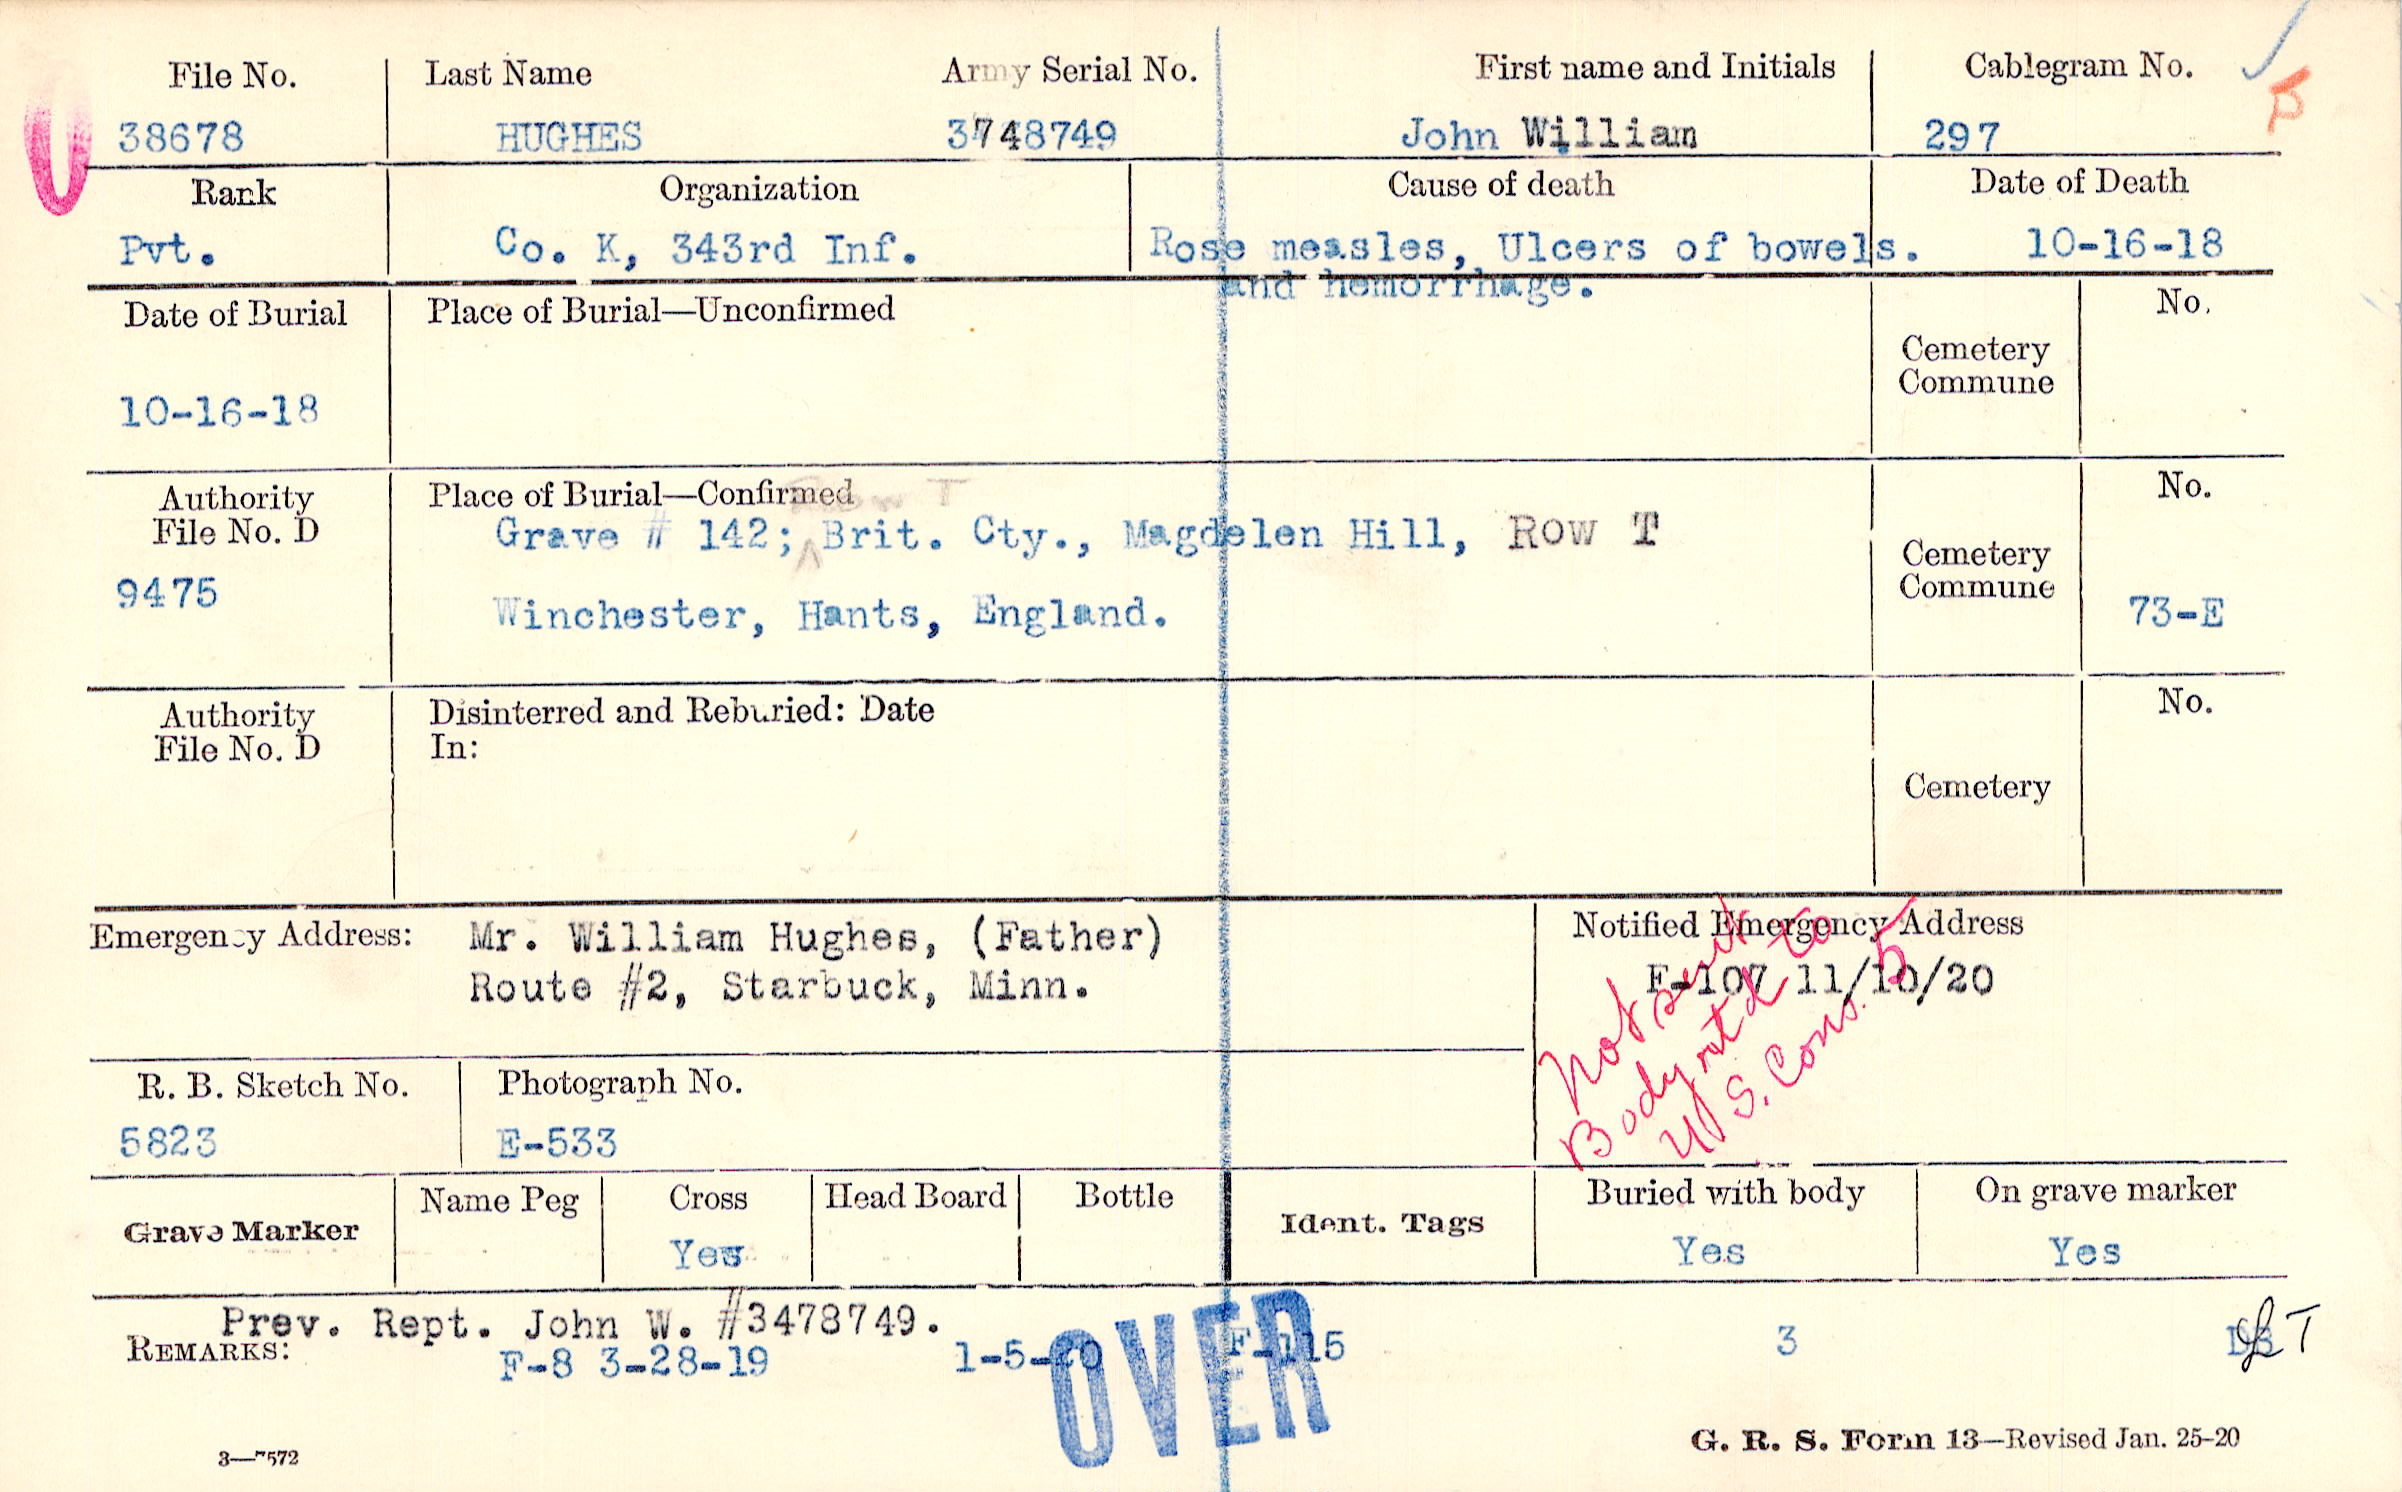 File No. Last Name Army Serial No. First name and Initials Cablegram No.
38678 HUGHES 3748749 John William 297
Rank Organization Cause of death Date of Death
Pvt. Co. K, 343rd Inf. Rose measles, Ulcers of bowels. 10-16-18
and hemorrhage.
Date of Burial Place of Burial—Unconfirmed No.
Cemetery
Commune
10-16-18
Authority Place of Burial—Confirmed No.
Row T
File No. D Grave # 142; Brit. Cty., Magdelen Hill, Row T
Cemetery
Commune
9475 Winchester, Hants, England. 73-E
Authority Disinterred and Reburied: Date No.
File No. D In:
Cemetery
Emergency Address: Mr. William Hughes, (Father) Notified Emergency Address
Route #2, Starbuck, Minn. F-107 11/10/20
Not sent
Body rtd to
U.S. Cons. 5
R. B. Sketch No. Photograph No.
5823 E-533
Grave Marker Name Peg Cross Head Board Bottle Ident. Tags Buried with body On grave marker
Yes Yes Yes
Prev. Rept. John W. #3478749.
REMARKS: F-8 3-28-19 1-5-20 F-115 3
OVER
3—7572 G. R. S. Form 13—Revised Jan. 25-20